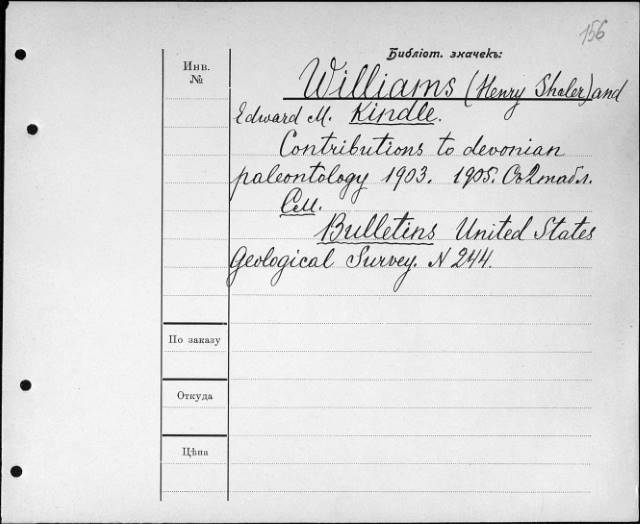 156
Библіот. значекъ:
Инв.
№
Williams (Henry Shaler) and
Edward M. Kindle.
Contributions to devonian
paleontology 1903. 1905. Съ 2 табл.
См.
Bulletins United States
Geological Survey. N 244.
По заказу
Откуда
Цѣна